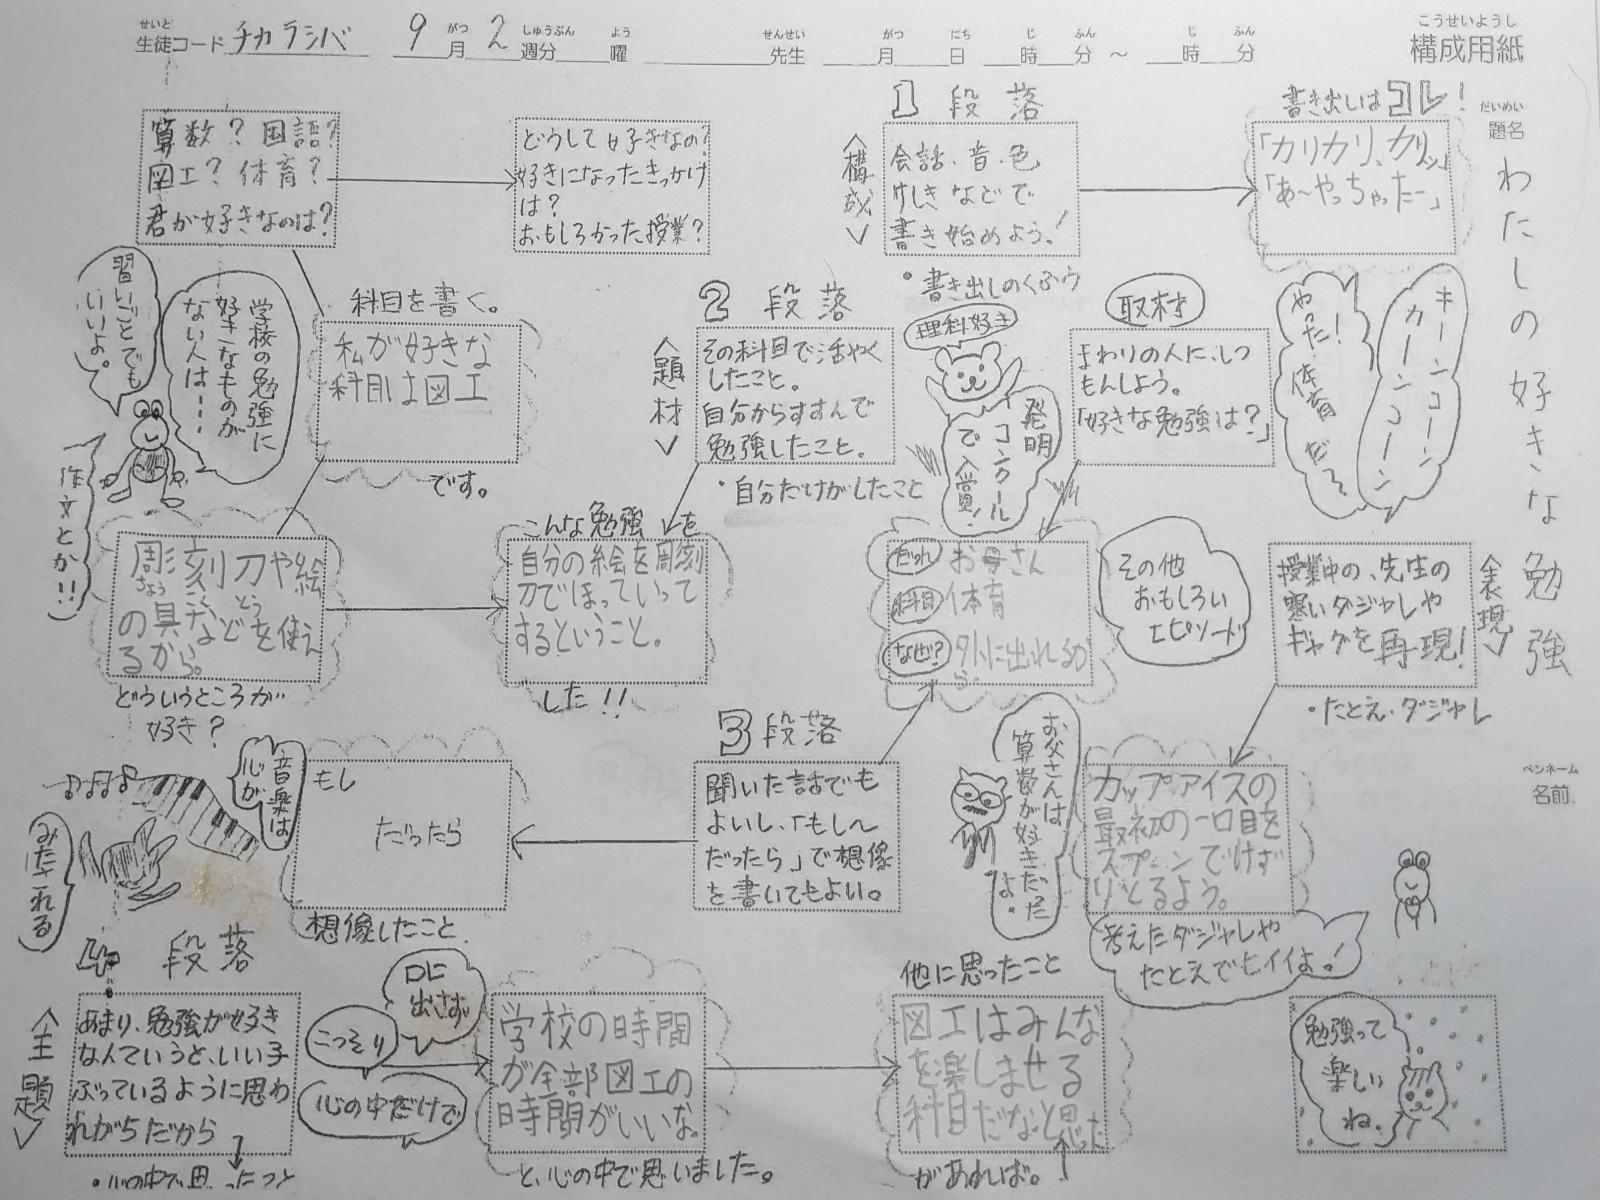 せいと がつ しゅうぶん よう せんせい がつ にち じ ふん じ ふん
生徒コード チカラシバ 9月 2週分 曜 先生 月 日 時 分 ～ 時 分
こうせいようし
構成用紙
だいめい
題名
わたしの好きな勉強
ペンネーム
名前
算数? 国語?
図工? 体育?
君が好きなのは?
どうして好きなの?
好きになったきっかけ
は?
おもしろかった授業?
1 段落
<構成>
会話・音・色
けしきなどで
書き始めよう!
・書き出しのくふう
書き出しはコレ!
「カリカリ、カリッ」
「あ～やっちゃったー」
キーンコーン
カーンコーン
やった!
体育だ〜
習いごとでも
いいよ。
学校の勉強に
好きなものが
ない人は・・・
作文とか!!
科目を書く。
私が好きな
科目は図工
です。
2 段落
<題材>
その科目で活やく
したこと。
自分からすすんで
勉強したこと。
・自分だけがしたこと
理科好き
発明
コンクール
で入賞!
取材
まわりの人に、しつ
もんしよう。
「好きな勉強は?」
彫刻刀や絵
の具などを使え
るから。
どういうところが
好き?
こんな勉強を
自分の絵を彫刻
刀でほっていって
するということ。
した!!
だれ お母さん
科目 体育
なぜ? 外に出れるか
ら。
その他
おもしろい
エピソード
<表現>
授業中の、先生の
寒いダジャレや
ギャグを再現!
・たとえ・ダジャレ
カップアイスの
最初の一口目を
スプーンでけず
りとるよう。
考えたダジャレや
たとえでモイイよ!
お父さんは
算数が好きだった
よ。
3 段落
聞いた話でも
よいし、「もし〜
だったら」で想像
を書いてもよい。
もし
だったら
想像したこと
音楽は
心が
みたされる
4 段落
<主題>
あまり、勉強が好き
なんていうと、いい子
ぶっているように思わ
れがちだから
・心の中で思ったこと
口に
出さず
こっそり
心の中だけで
学校の時間
が全部図工の
時間がいいな。
と、心の中で思いました。
他に思ったこと
図工はみんな
を楽しませる
科目だなと思った
があれば。
勉強って
楽しい
ね。